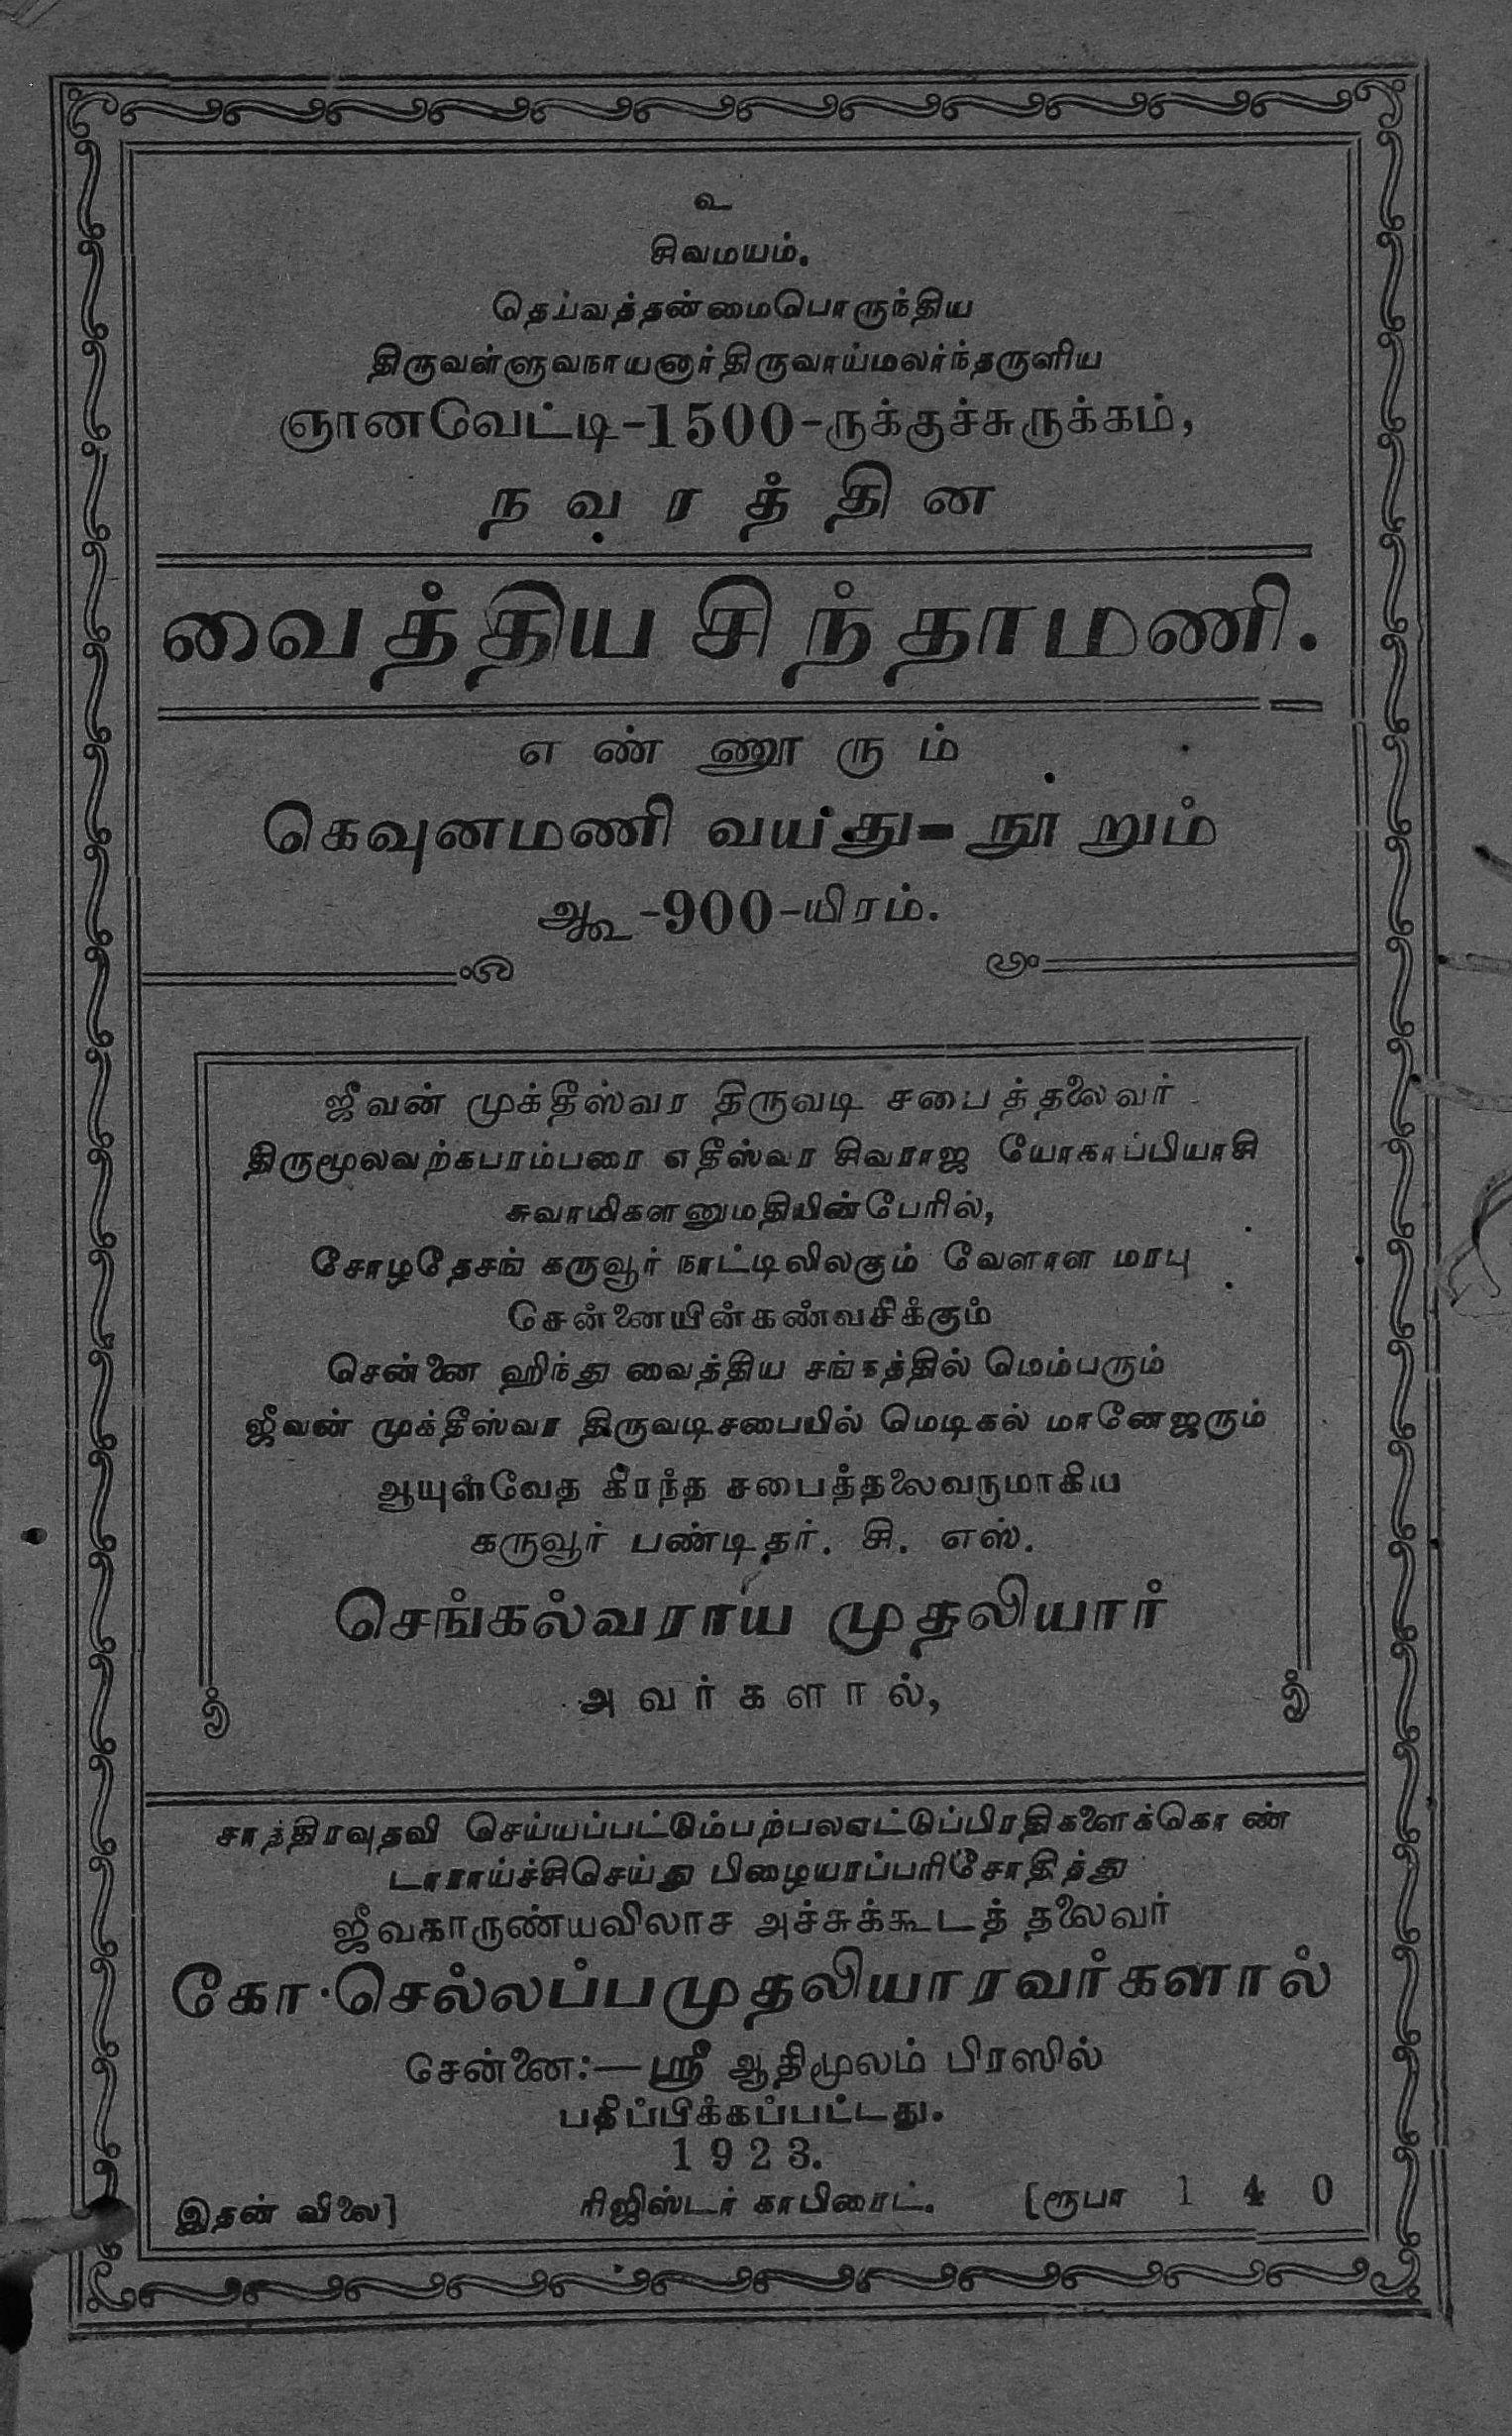 உ
சிவமயம்.
தெய்வத்தன்மைபொருந்திய
திருவள்ளுவநாயனார்திருவாய்மலர்ந்தருளிய
ஞானவேட்டி-1500-ருக்குச்சுருக்கம்,
நவரத்தின
வைத்திய சிந்தாமணி.
எண்ணூரும்
கெவுனமணி வயது-நூறும்
ஆக-900-யிரம்.
ஜீவன் முக்தீஸ்வர திருவடி சபைத்தலைவர்
திருமூலவற்கபரம்பரை எதீஸ்வர சிவராஜ யோகாப்பியாசி
சுவாமிகளனுமதியின்பேரில்,
சோழதேசங் கருவூர் நாட்டிலிலகும் வேளாள மரபு
சென்னையின்கண்வசிக்கும்
சென்னை ஹிந்து வைத்திய சங்கத்தில் மெம்பரும்
ஜீவன் முக்தீஸ்வர திருவடிசபையில் மெடிகல் மானேஜரும்
ஆயுள்வேத கிரந்த சபைத்தலைவருமாகிய
கருவூர் பண்டிதர். சி. எஸ்.
செங்கல்வராய முதலியார்
அவர்களால்,
சாத்திரவுதவி செய்யப்பட்டும்பற்பலஏட்டுப்பிரதிகளைக்கொண்
டாராய்ச்சிசெய்து பிழையரப்பரிசோதித்து
ஜீவகாருண்யவிலாச அச்சுக்கூடத் தலைவர்
கோ.செல்லப்பமுதலியாரவர்களால்
சென்னை:—ஸ்ரீ ஆதிமூலம் பிரஸில்
பதிப்பிக்கப்பட்டது.
1923.
இதன் விலை] ரிஜிஸ்டர் காபிரைட். [ரூபா 1 4 0